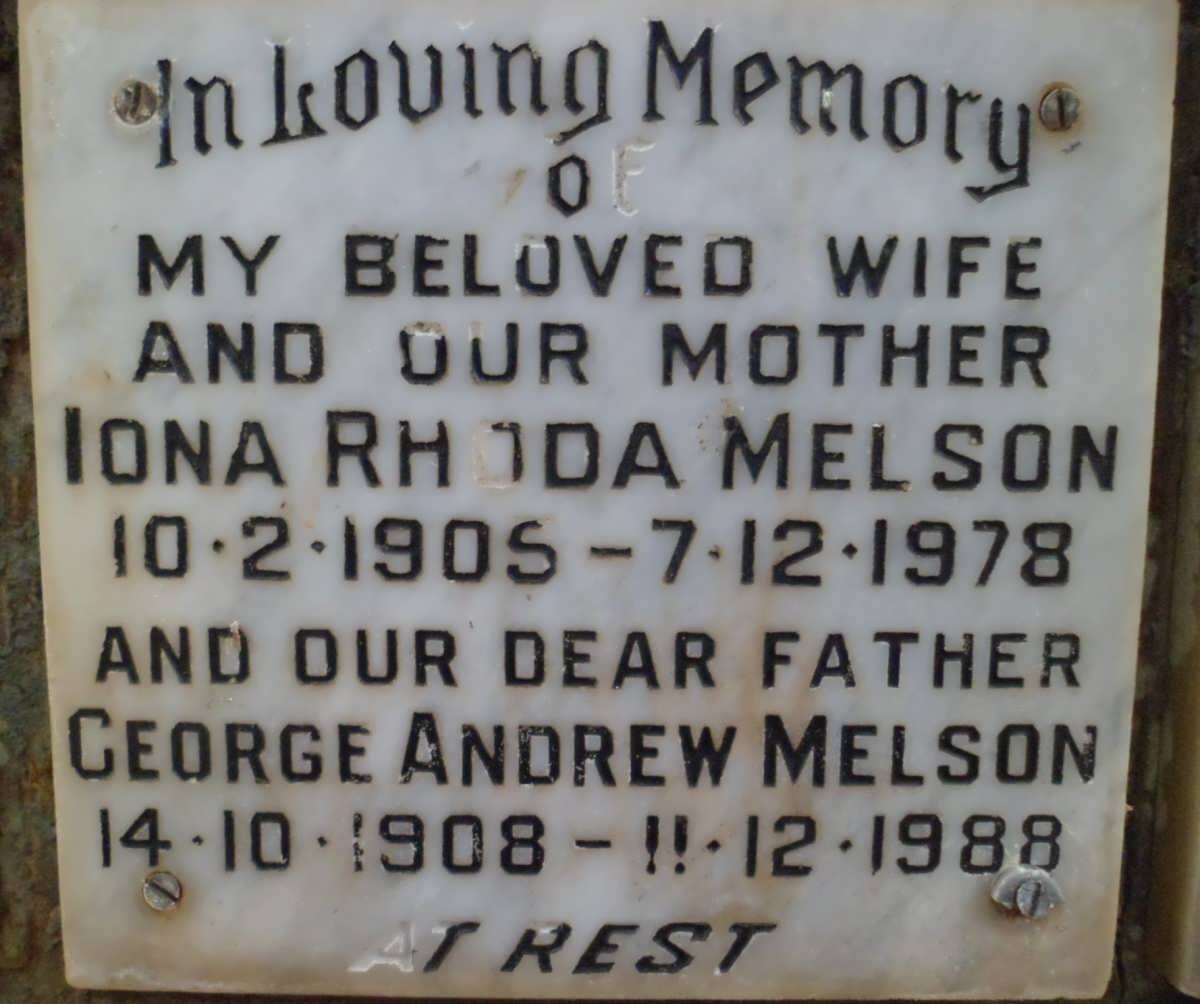 In Loving Memory
OF
MY BELOVED WIFE
AND OUR MOTHER
IONA RHODA MELSON
10·2·1905 – 7·12·1978
AND OUR DEAR FATHER
GEORGE ANDREW MELSON
14·10·1908 – 11·12·1988
AT REST